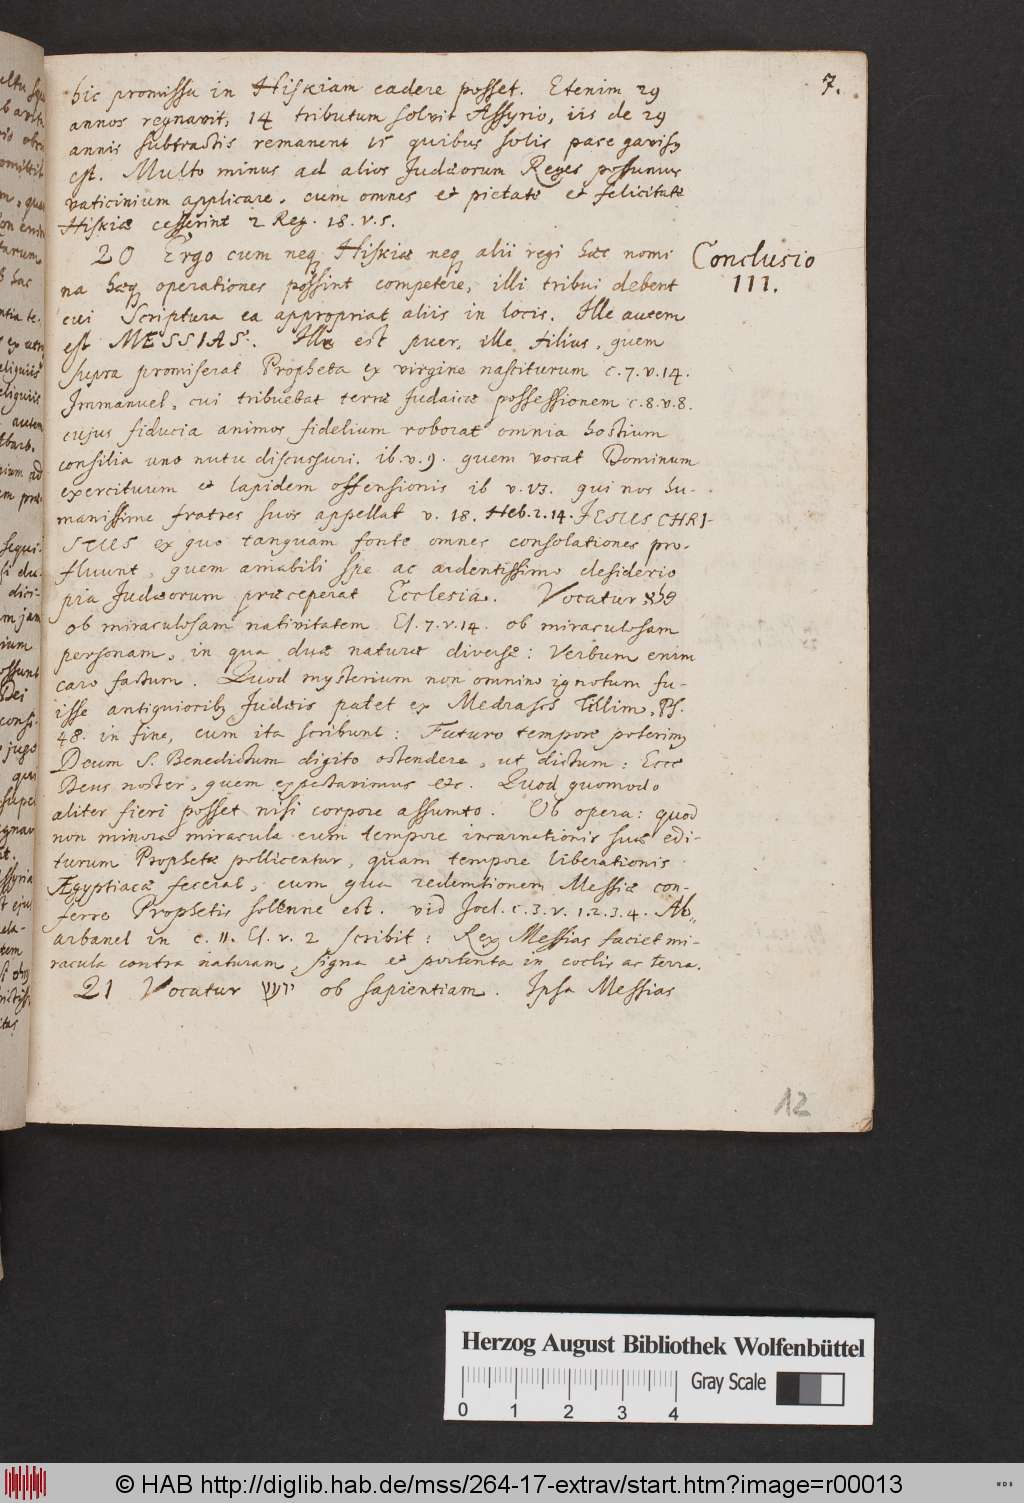 7.
hic promissu in Hiskiam cadere posset. Etenim 29
annos regnavit, 14 tributum solvit Assyrio, iis de 29
annis subtractis remanent 15 quibus solis pace gavisq
est. Multo minus ad alios Judæorum Reges possumus
vaticinium applicare, cum omnes et pietate et felicitate
Hiskiæ cesserint 2 Reg. 18. v. 5.
20 Ergo cum neq Hiskiæ neq alii regi hæc nomi
na hæq operationes possint competere, illi tribui debent
cui Scriptura ea appropriat aliis in locis. Ille autem
est MESSIAS. Ille est puer, ille filius, quem
supra promiserat Propheta ex virgine nasciturum c. 7. v. 14.
Immanuel, cui tribuebat terræ Judaicæ possessionem c. 8. v. 8.
cujus fiducia animos fidelium roborat omnia hostium
consilia uno nutu discussuri. ib. v. 9. quem vocat Dominum
exercituum et lapidem offensionis ib v. 13. qui nos hu-
manissime fratres suos appellat v. 18. Heb. 2. 14. JESUS CHRI-
STUS ex quo tanquam fonte omnes consolationes pro-
fluunt, quem amabili spe ac ardentissimo desiderio
pia Judæorum præceperat Ecclesia. Vocatur פלא
ob miraculosam nativitatem El. 7. v. 14. ob miraculosam
personam, in qua duæ naturæ diversæ: Verbum enim
caro factum. Quod mysterium non omnino ignotum fu-
isse antiquiorib Judæis patet ex Medrasch Tillim, Ps.
48. in fine, cum ita scribunt: Futuro tempore poterimq
Deum S. Benedictum digito ostendere, ut dictum: Ecce
Deus noster, quem expectavimus etc. Quod quomodo
aliter fieri posset nisi corpore assumto. Ob opera: quod
non minora miracula cum tempore incarnationis suæ edi-
turum Prophetæ pollicentur, quam tempore liberationis
Ægyptiacæ fecerat, cum qua redemtionem Messiæ con-
ferre Prophetis solenne est. vid Joel. c. 3. v. 1. 2. 3. 4. Ab-
arbanel in c. 11. El. v. 2 scribit: Rex Messias faciet mi-
racula contra naturam, signa et portenta in coelis ac terra.
21 Vocatur יועץ ob sapientiam. Ipsa Messias
Conclusio
III.
12
Herzog August Bibliothek Wolfenbüttel
Gray Scale
0 1 2 3 4
© HAB http://diglib.hab.de/mss/264-17-extrav/start.htm?image=r00013